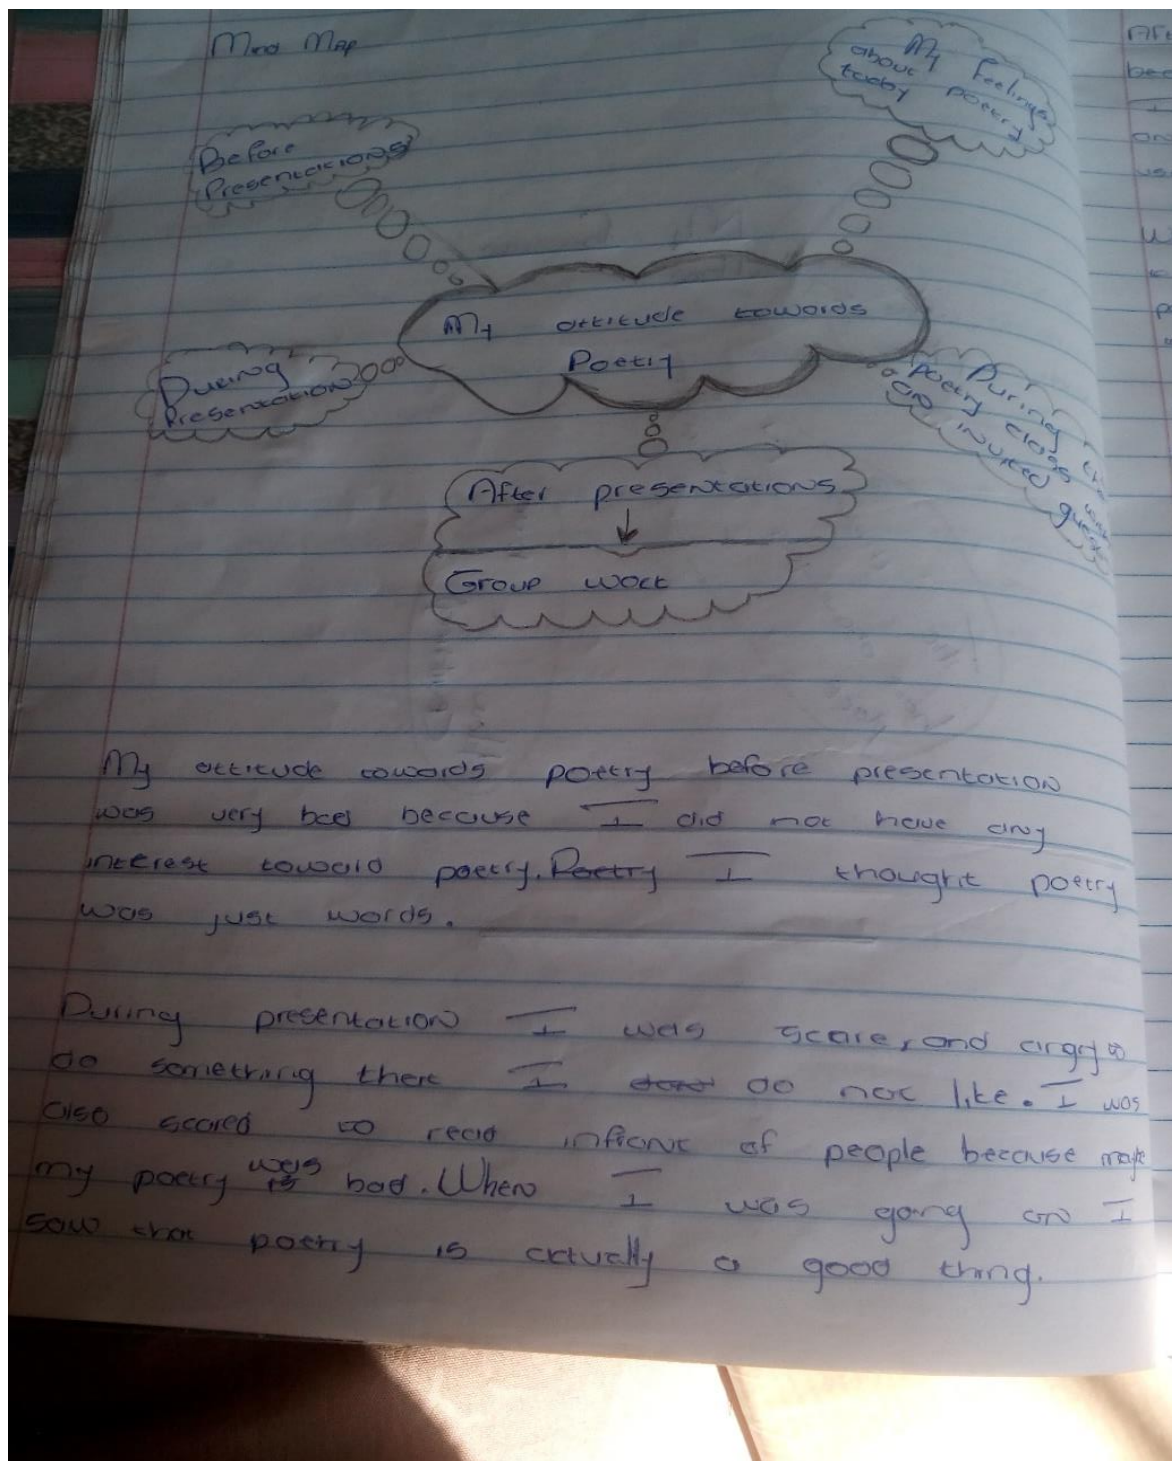 Mind Map
My Feelings
about poetry
today
Before
Presentations
My attitude towards
Poetry
During
Presentation
During the
poetry class with
an invited guest
After presentations
Group work
My attitude towards poetry before presentation
was very bad because I did not have any
interest toward poetry. Poetry I thought poetry
was just words.
During presentation I was scare, and angry to
do something there I do not like. I was
also scared to read infront of people because maybe
my poetry was is bad. When I was going on I
saw that poetry is actually a good thing.